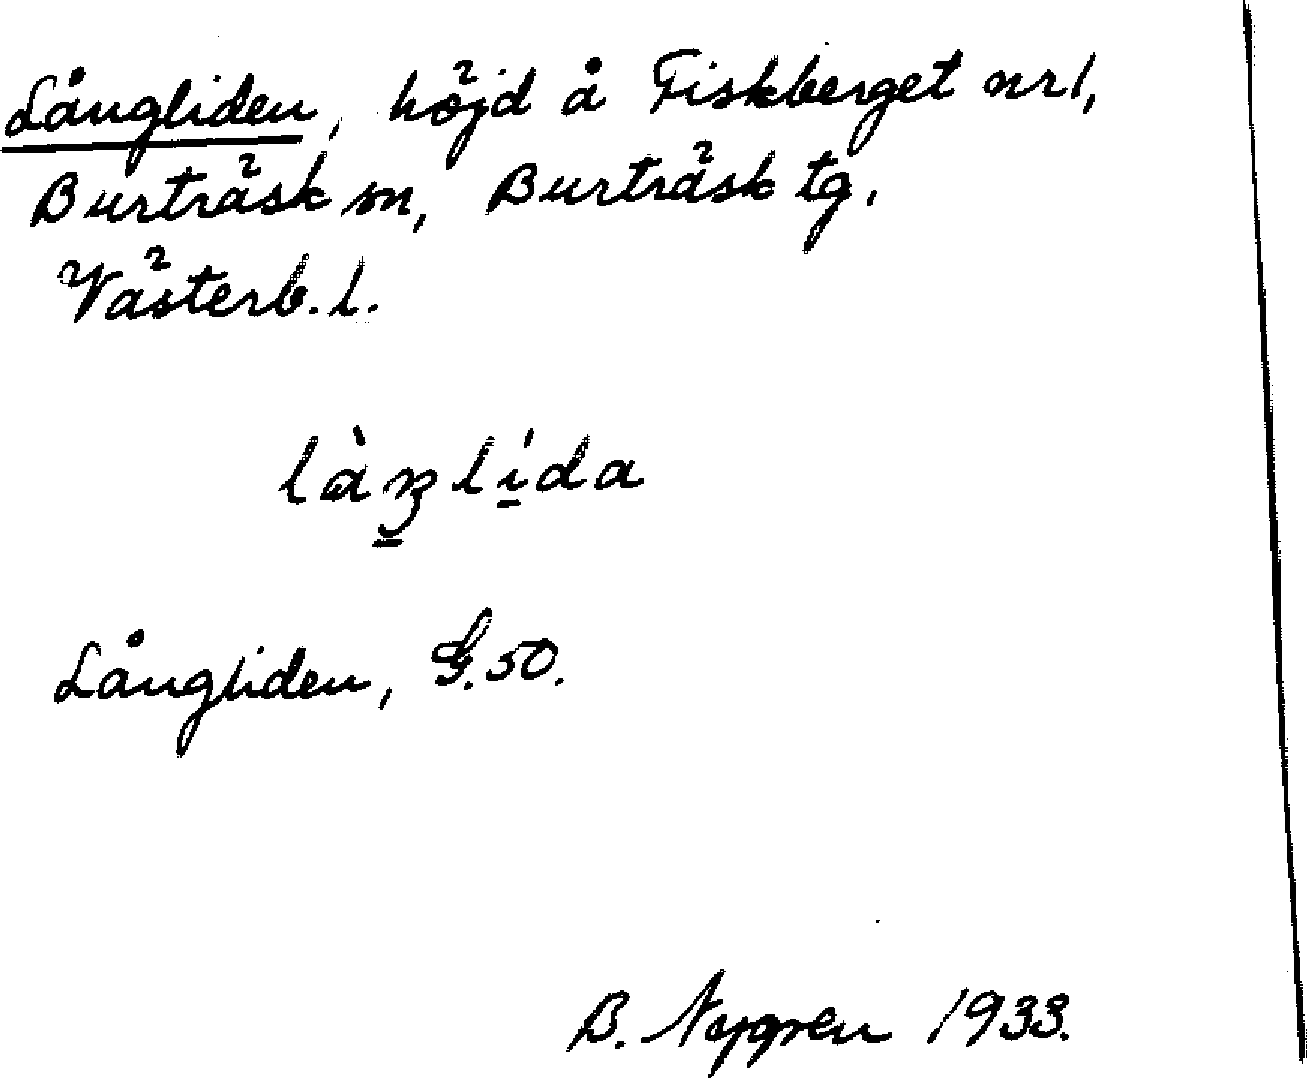 Långliden, höjd å Fiskberget nr 1,
Burträsk sn, Burträsk tg,
Västerb. l.
là̱ŋlí̱da
Långliden, G. 50.
B. Nygren 1933.